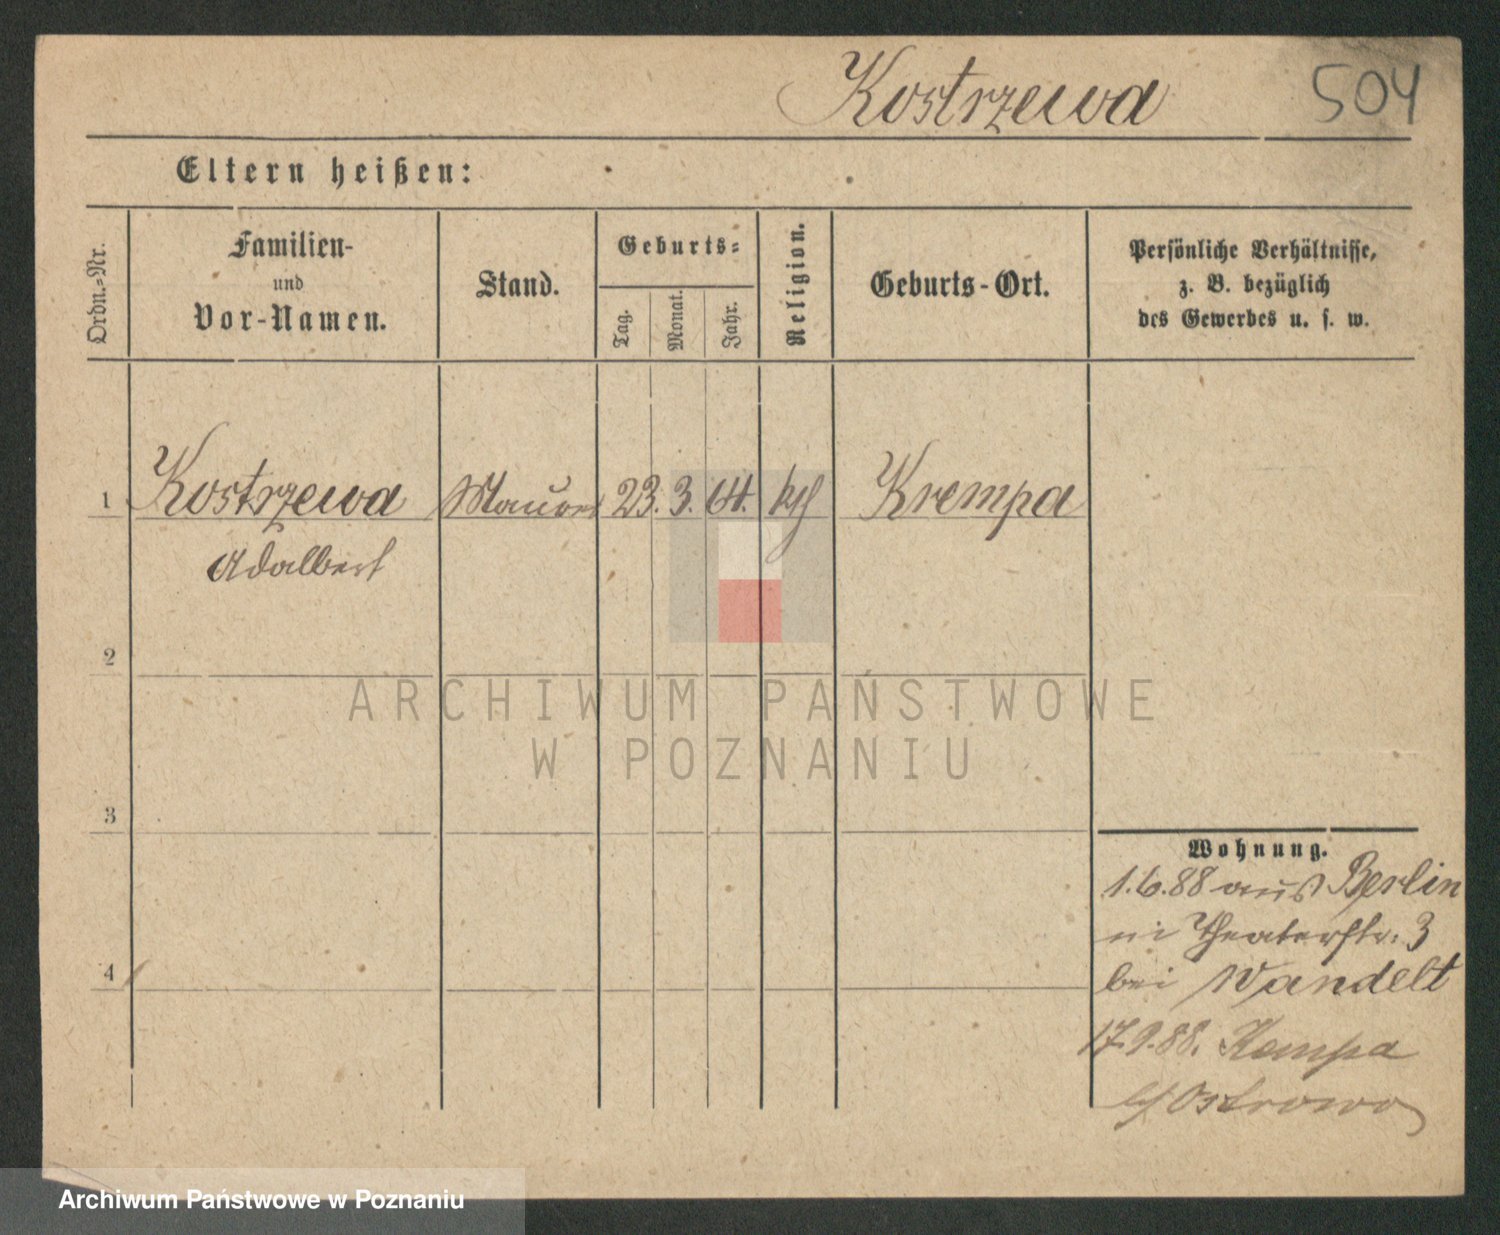 Kostrzewa
504
Eltern heißen:
Ordn.-Nr.
Familien-
und
Vor-Namen.
Stand.
Geburts-
Tag.
Monat.
Jahr.
Religion.
Geburts-Ort.
Persönliche Verhältnisse,
z. B. bezüglich
des Gewerbes u. s. w.
1 Kostrzewa Maurer 23. 3. 64. kth Krempa
Adalbert
2
3
4
ARCHIWUM PAŃSTWOWE
W POZNANIU
Wohnung.
1.6.88 aus Berlin
Theaterstr. 3
bei Wandelt
17.9.88. Kempa
Ostrowo
Archiwum Państwowe w Poznaniu